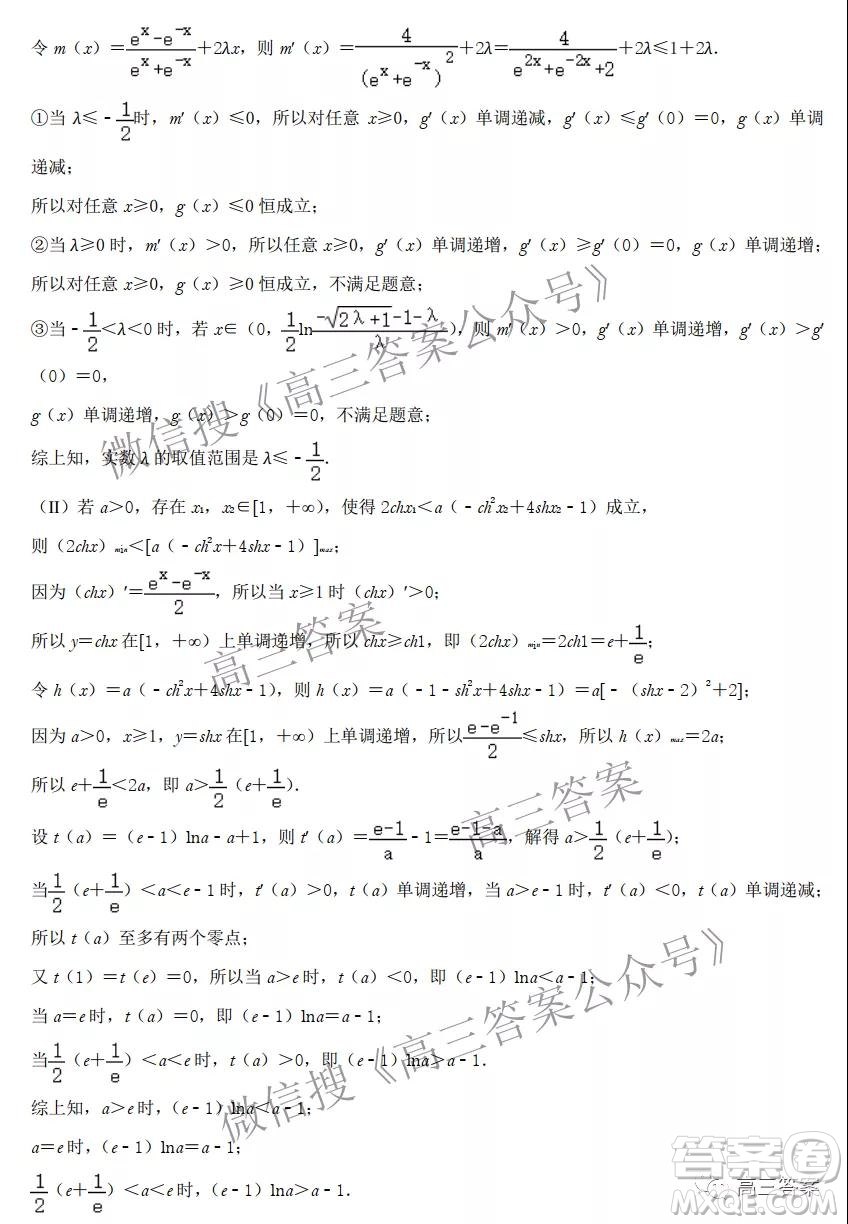 令 m（x）＝(e^x－e^-x)/(e^x＋e^-x)＋2λx，则 m′（x）＝4/(e^x＋e^-x)^2＋2λ＝4/(e^2x＋e^-2x＋2)＋2λ≤1＋2λ．
①当 λ≤－1/2时，m′（x）≤0，所以对任意 x≥0，g′（x）单调递减，g′（x）≤g′（0）＝0，g（x）单调
递减；
所以对任意 x≥0，g（x）≤0 恒成立；
②当 λ≥0 时，m′（x）＞0，所以任意 x≥0，g′（x）单调递增，g′（x）≥g′（0）＝0，g（x）单调递增；
所以对任意 x≥0，g（x）≥0 恒成立，不满足题意；
③当－1/2＜λ＜0 时，若 x∈（0，1/2 ln (－√(2λ+1)－1－λ)/λ），则 m′（x）＞0，g′（x）单调递增，g′（x）＞g′
（0）＝0，
g（x）单调递增，g（x）＞g（0）＝0，不满足题意；
综上知，实数 λ 的取值范围是 λ≤－1/2．
（II）若 a＞0，存在 x₁，x₂∈[1，＋∞），使得 2chx₁＜a（－ch²x₂＋4shx₂－1）成立，
则（2chx）min＜[a（－ch²x＋4shx－1）]max；
因为（chx）′＝(e^x－e^-x)/2，所以当 x≥1 时（chx）′＞0；
所以 y＝chx 在[1，＋∞）上单调递增，所以 chx≥ch1，即（2chx）min＝2ch1＝e＋1/e；
令 h（x）＝a（－ch²x＋4shx－1），则 h（x）＝a（－1－sh²x＋4shx－1）＝a[－（shx－2）²＋2]；
因为 a＞0，x≥1，y＝shx 在[1，＋∞）上单调递增，所以(e－e^-1)/2≤shx，所以 h（x）max＝2a；
所以 e＋1/e＜2a，即 a＞1/2（e＋1/e）．
设 t（a）＝（e－1）lna－a＋1，则 t′（a）＝(e－1)/a－1＝(e－1－a)/a，解得 a＞1/2（e＋1/e）；
当1/2（e＋1/e）＜a＜e－1 时，t′（a）＞0，t（a）单调递增，当 a＞e－1 时，t′（a）＜0，t（a）单调递减；
所以 t（a）至多有两个零点；
又 t（1）＝t（e）＝0，所以当 a＞e 时，t（a）＜0，即（e－1）lna＜a－1；
当 a＝e 时，t（a）＝0，即（e－1）lna＝a－1；
当1/2（e＋1/e）＜a＜e 时，t（a）＞0，即（e－1）lna＞a－1．
综上知，a＞e 时，（e－1）lna＜a－1；
a＝e 时，（e－1）lna＝a－1；
1/2（e＋1/e）＜a＜e 时，（e－1）lna＞a－1．
微信搜《高三答案公众号》
高三答案
高三答案
微信搜《高三答案公众号》
高三答案
答案卷
MXQE.COM